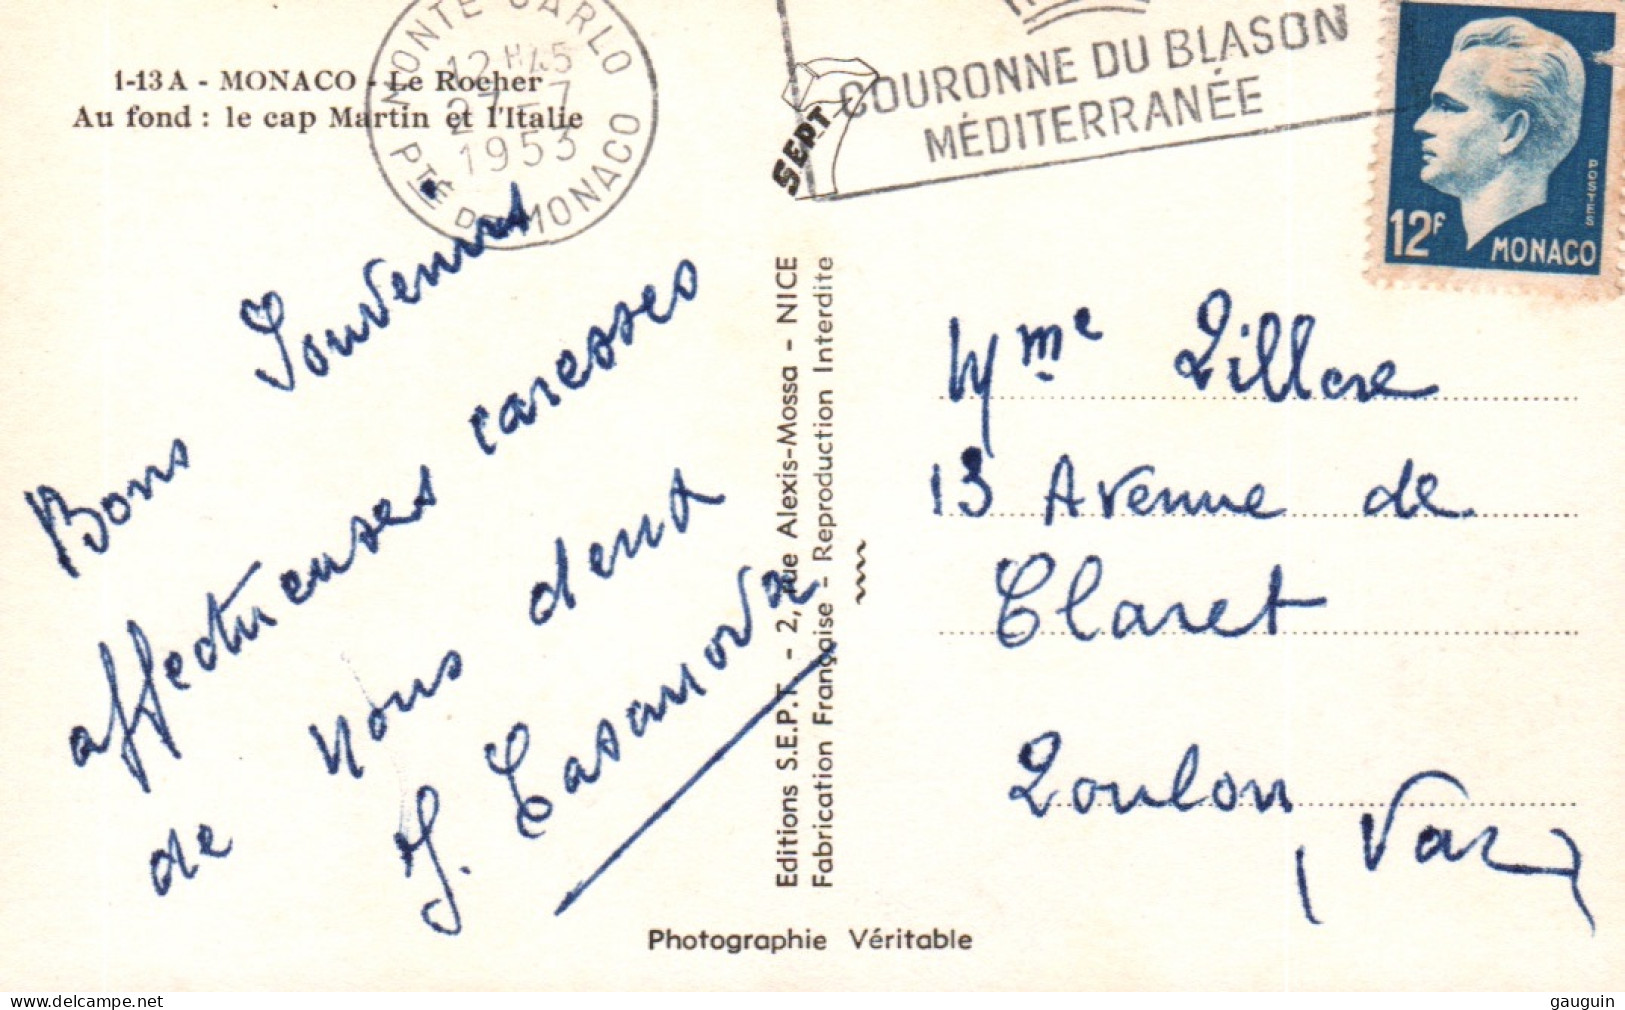 1-13 A - MONACO - Le Rocher
Au fond : le cap Martin et l'Italie
MONTE CARLO
12 H 45
27 - 7
1953
Pté DE MONACO
COURONNE DU BLASON
MÉDITERRANÉE
SEPT
POSTES
12F
MONACO
Bons Souvenirs
affectueuses caresses
de nous deux
J. Casanova
Editions S.E.P.T. - 2, rue Alexis-Mossa - NICE
Fabrication Française - Reproduction Interdite
Mme
13 Avenue de
Claret
Toulon, Var
Photographie Véritable
delcampe.net
gauguin